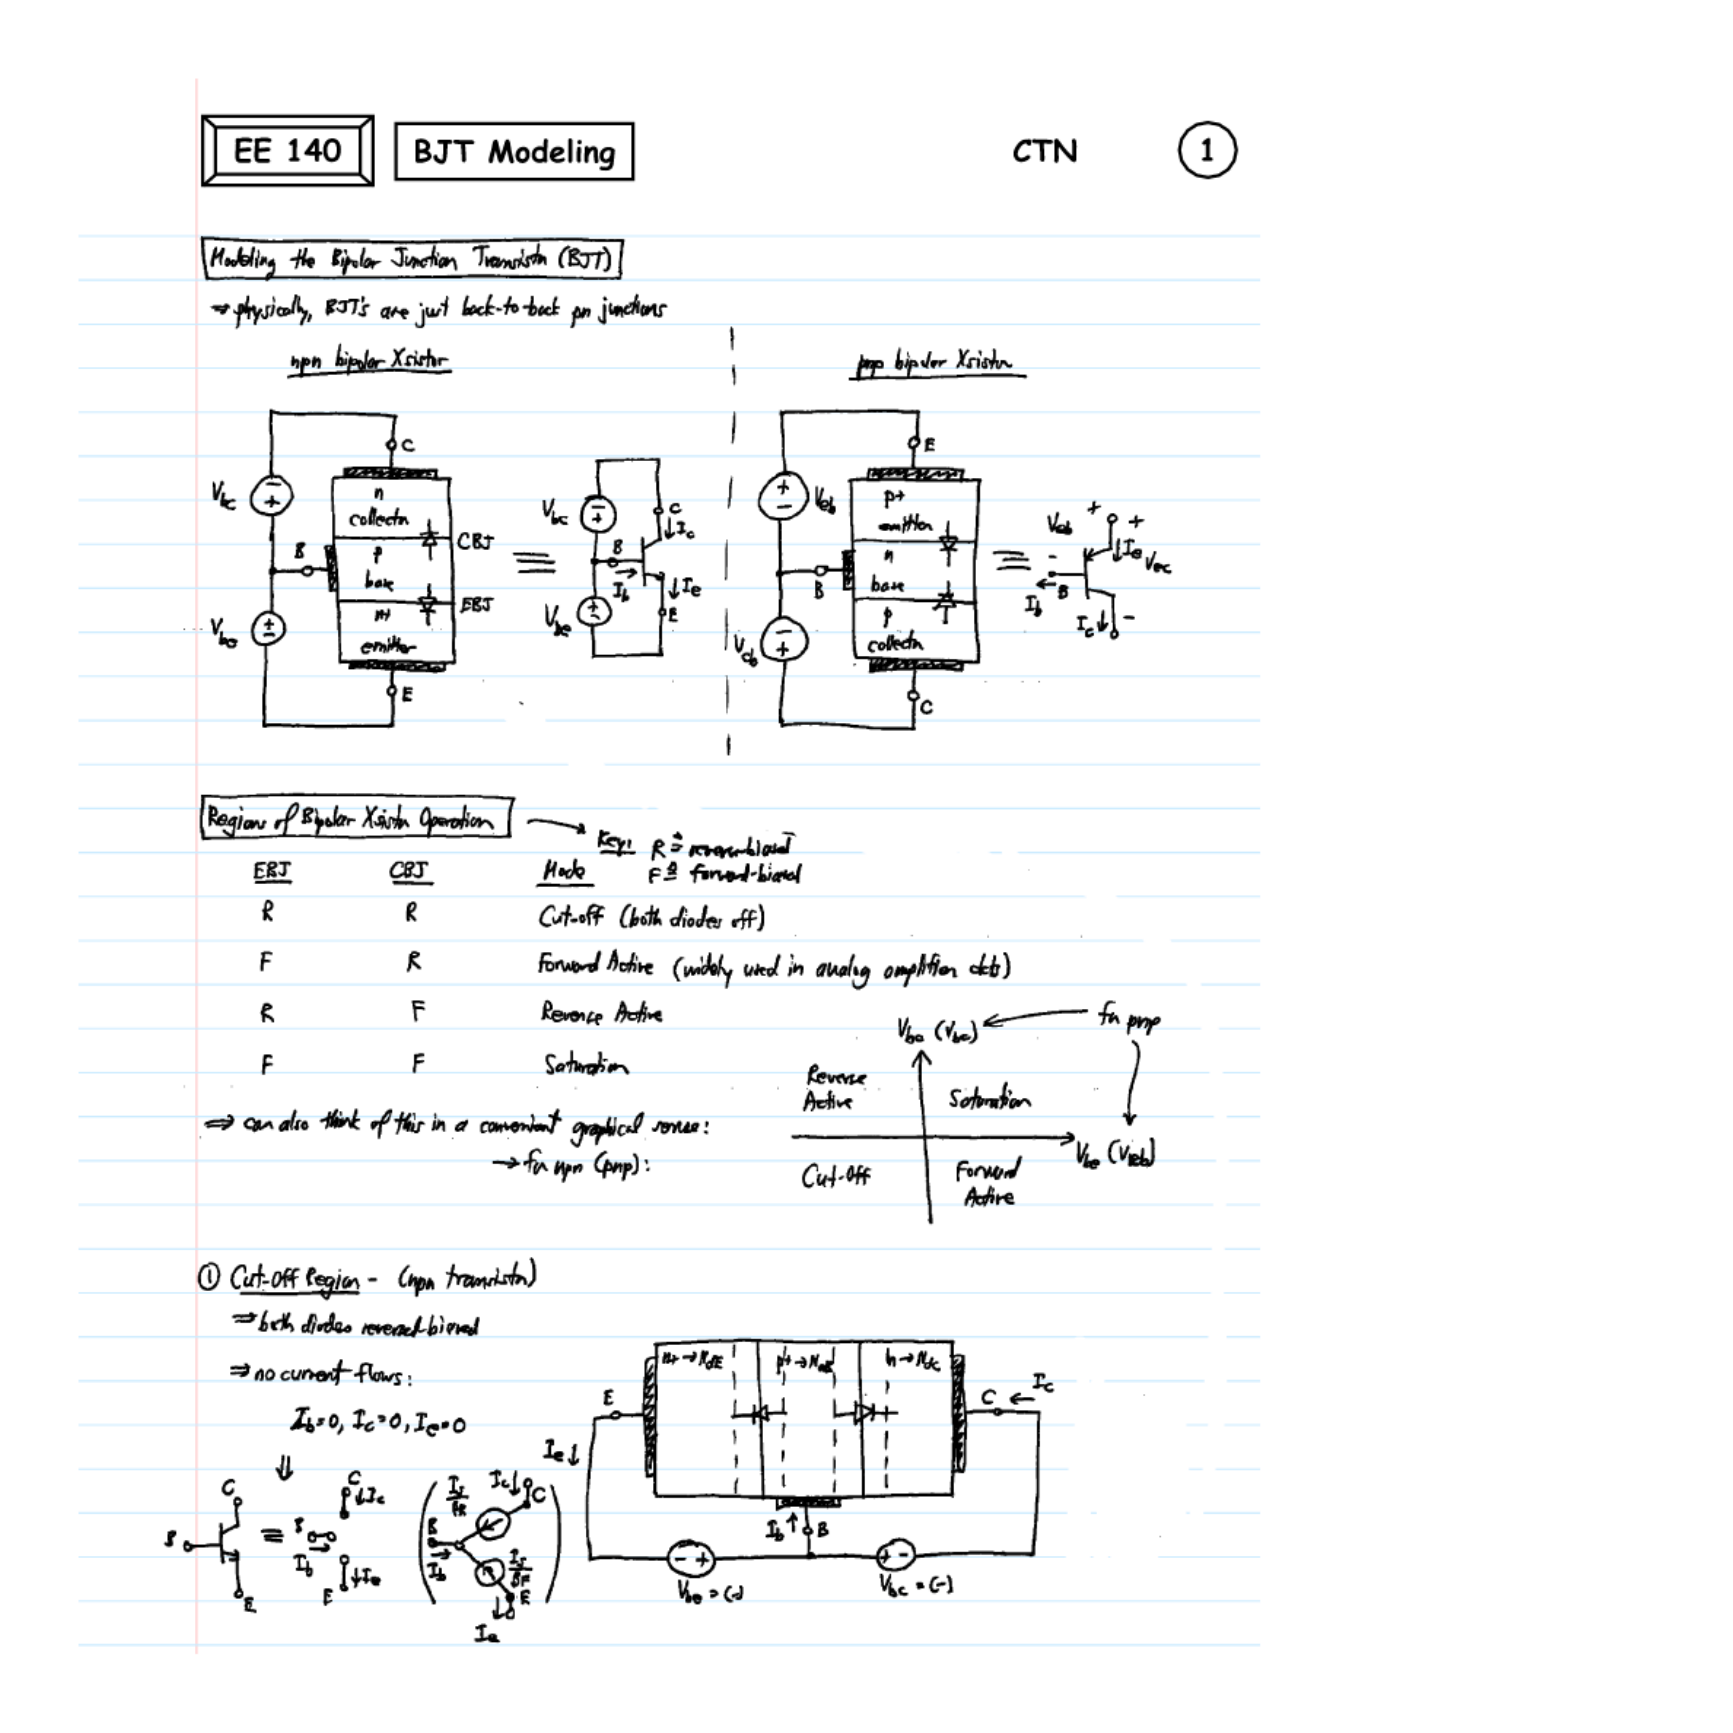 EE 140
BJT Modeling
CTN
1
Modeling the Bipolar Junction Transistor (BJT)
⇒ physically, BJT's are just back-to-back pn junctions
npn bipolar Xsistor
pnp bipolar Xsistor
C
Vbc
n
collector
CBJ
B
p
base
EBJ
Vbe
n+
emitter
E
≡
Vbc
C
↓Ic
B
→
Ib
↓Ie
Vbe
E
E
Veb
p+
emitter
n
base
B
p
collector
Vcb
C
≡
Veb
+ +
↓Ie
Vec
-
B
Ib
Ic↓
-
Regions of Bipolar Xsistor Operation
Key: R ≜ reverse-biased
F ≜ forward-biased
EBJ CBJ Mode
R R Cut-off (both diodes off)
F R Forward Active (widely used in analog amplifier ckts)
R F Reverse Active
F F Saturation
⇒ can also think of this in a convenient graphical sense:
→ for npn (pnp):
for pnp
Reverse
Active
Saturation
Cut-Off
Forward
Active
① Cut-Off Region - (npn transistor)
⇒ both diodes reversed-biased
⇒ no current flows:
Ib=0, Ic=0, Ie=0
⇓
C
B
E
≡
C
↓Ic
B
Ib
E
↓Ie
Ic↓
C
B
Ib
E
Ie
n+ → NdE
n → NdC
E
Ie↓
C
← Ic
Ib↑
B
- +
Vbe = (-)
+ -
Vbc = (-)